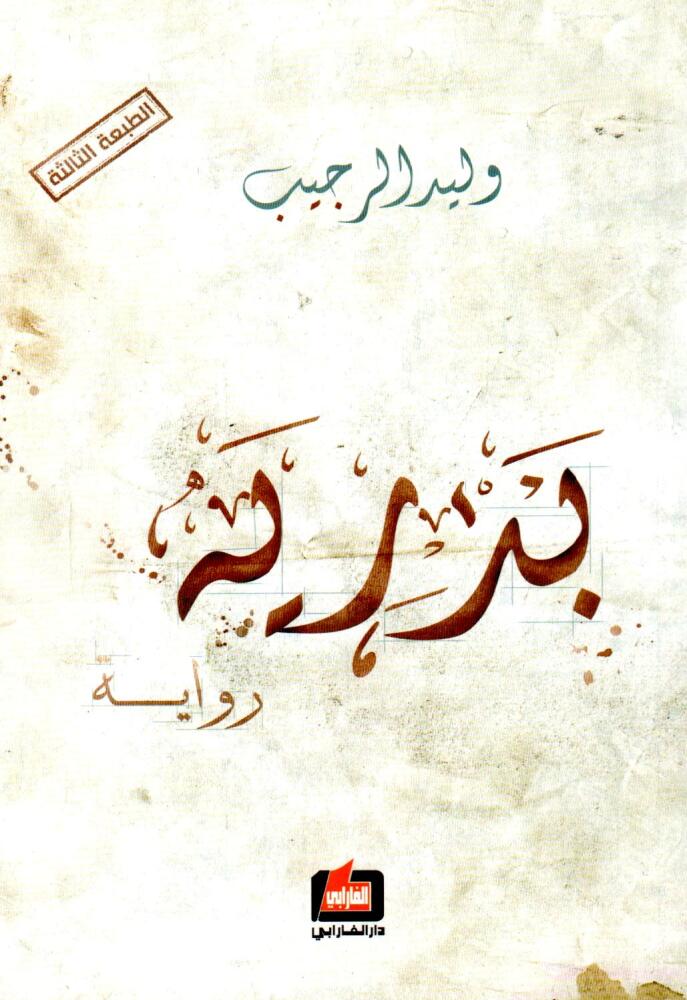 الطبعة الثالثة
وليد الرجيب
بدرية
رواية
الفارابي
دار الفارابي